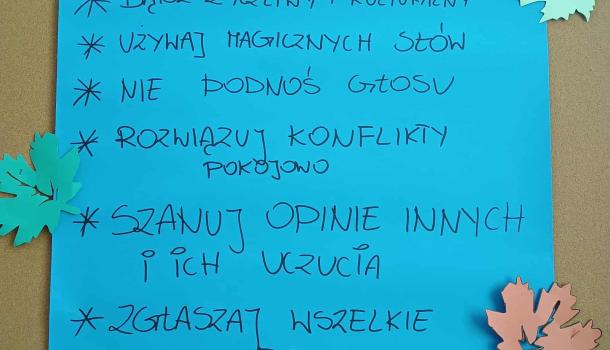 * UŻYWAJ MAGICZNYCH SŁÓW
* NIE PODNOŚ GŁOSU
* ROZWIĄZUJ KONFLIKTY
POKOJOWO
* SZANUJ OPINIE INNYCH
I ICH UCZUCIA
* ZGŁASZAJ WSZELKIE